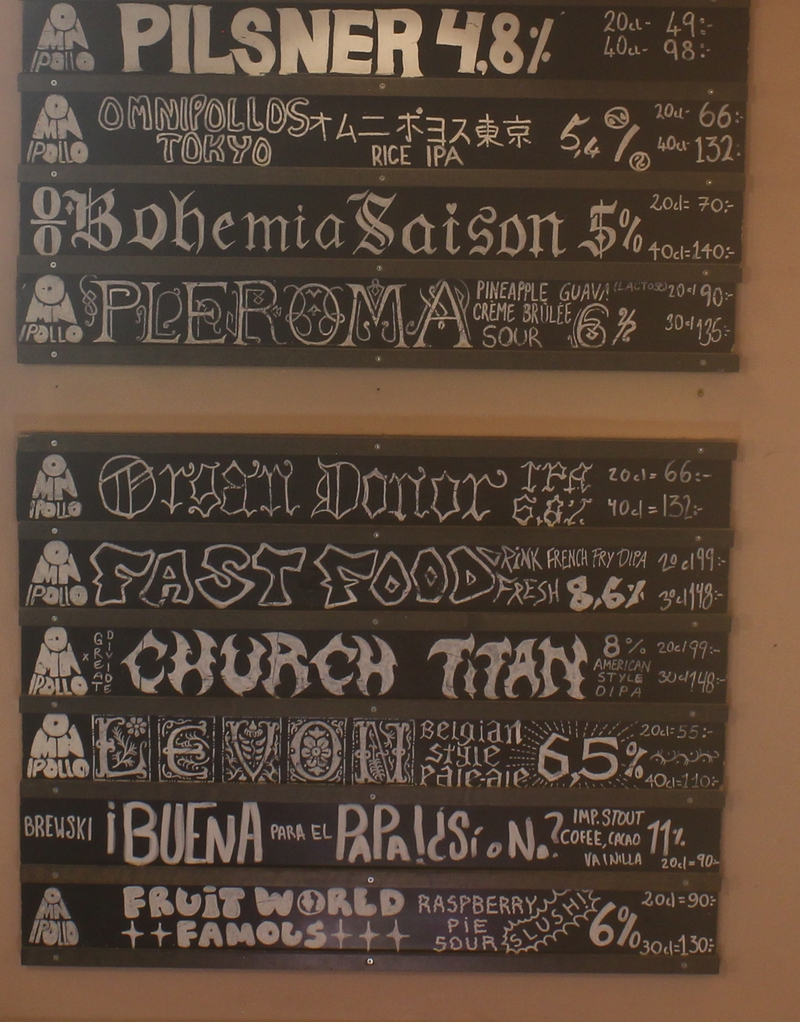 OMNIPOLLO PILSNER 4,8% 20cl- 49:-
40cl- 98:-
OMNIPOLLO OMNIPOLLOS オムニポヨス東京 5,4% 20cl- 66:-
TOKYO RICE IPA 40cl- 132:-
Bohemia Saison 5% 20cl= 70:-
40cl=140:-
OMNIPOLLO PLEROMA PINEAPPLE GUAVA (LACTOSE) 6% 20cl 90:-
CRÈME BRÛLÉE
SOUR 30cl 135:-
OMNIPOLLO Organ Donor IPA 20cl= 66:-
6,8% 40cl=132:-
OMNIPOLLO FAST FOOD PINK FRENCH FRY DIPA 20cl 99:-
FRESH 8,6% 30cl 148:-
OMNIPOLLO x GREAT DIVIDE CHURCH TITAN 8% 20cl 99:-
AMERICAN
STYLE 30cl 148:-
DIPA
OMNIPOLLO LEVON Belgian 6,5% 20cl=55:-
style
Pale-ale 40cl=110:-
BREWSKI ¡BUENA PARA EL PAPA! IMP.STOUT 11%
COFEE, CACAO
VAINILLA 20cl=90:-
OMNIPOLLO FRUiT WORLD RASPBERRY SLUSH! 6% 20cl=90:-
FAMOUS PiE
SOUR 30cl=130:-